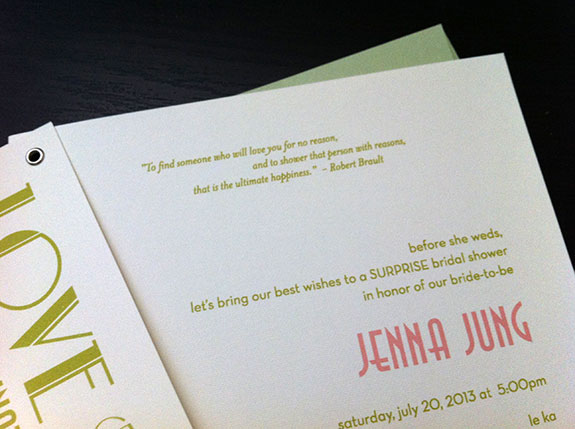 "To find someone who will love you for no reason,
and to shower that person with reasons,
that is the ultimate happiness." – Robert Brault
before she weds,
let's bring our best wishes to a SURPRISE bridal shower
in honor of our bride-to-be
JENNA JUNG
saturday, july 20, 2013 at 5:00pm
le ka
LOVE